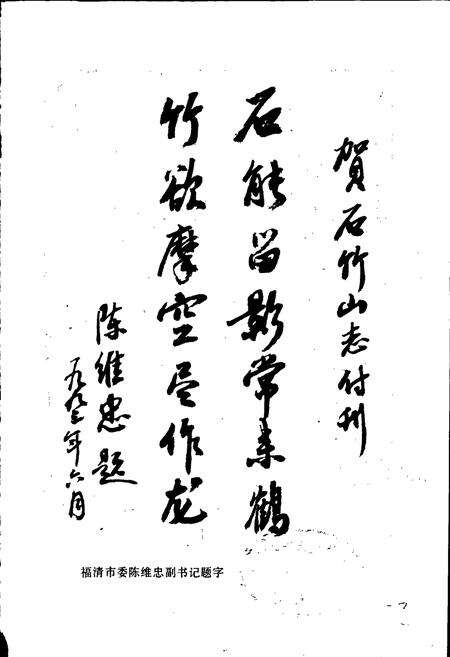 贺石竹山志付刊
石能留影常来鹤
竹欲摩空尽作龙
陈维忠题
一九九三年六月
福清市委陈维忠副书记题字